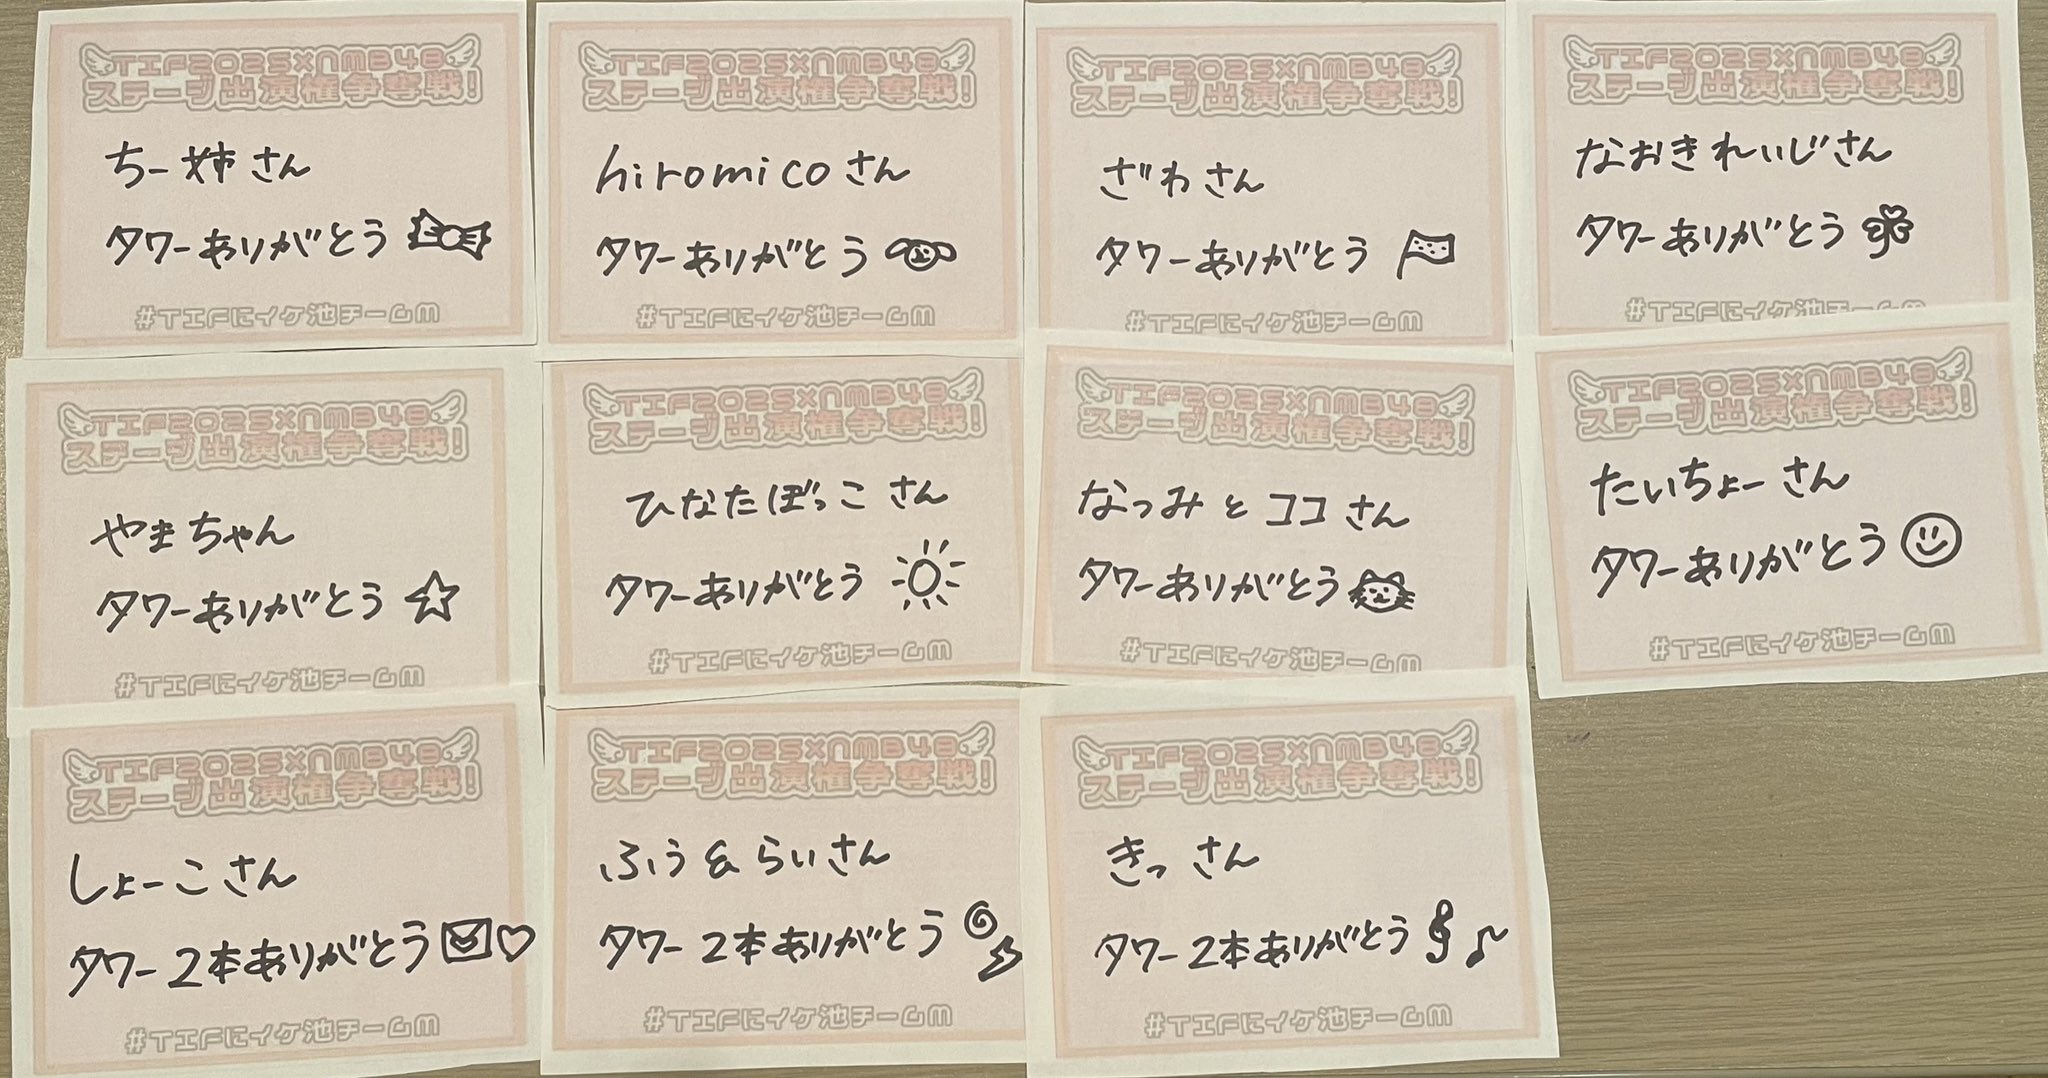 TIF2025×NMB48
ステージ出演権争奪戦!
ちー姉さん
タワーありがとう
#TIFにイケ池チームM
TIF2025×NMB48
ステージ出演権争奪戦!
hiromicoさん
タワーありがとう
#TIFにイケ池チームM
TIF2025×NMB48
ステージ出演権争奪戦!
ざわさん
タワーありがとう
#TIFにイケ池チームM
TIF2025×NMB48
ステージ出演権争奪戦!
なおきれいじさん
タワーありがとう
#TIFにイケ池チームM
TIF2025×NMB48
ステージ出演権争奪戦!
やまちゃん
タワーありがとう
#TIFにイケ池チームM
TIF2025×NMB48
ステージ出演権争奪戦!
ひなたぼっこさん
タワーありがとう
#TIFにイケ池チームM
TIF2025×NMB48
ステージ出演権争奪戦!
なつみとココさん
タワーありがとう
#TIFにイケ池チームM
TIF2025×NMB48
ステージ出演権争奪戦!
たいちょーさん
タワーありがとう
#TIFにイケ池チームM
TIF2025×NMB48
ステージ出演権争奪戦!
しょーこさん
タワー2本ありがとう
#TIFにイケ池チームM
TIF2025×NMB48
ステージ出演権争奪戦!
ふう&らいさん
タワー2本ありがとう
#TIFにイケ池チームM
TIF2025×NMB48
ステージ出演権争奪戦!
きっさん
タワー2本ありがとう
#TIFにイケ池チームM